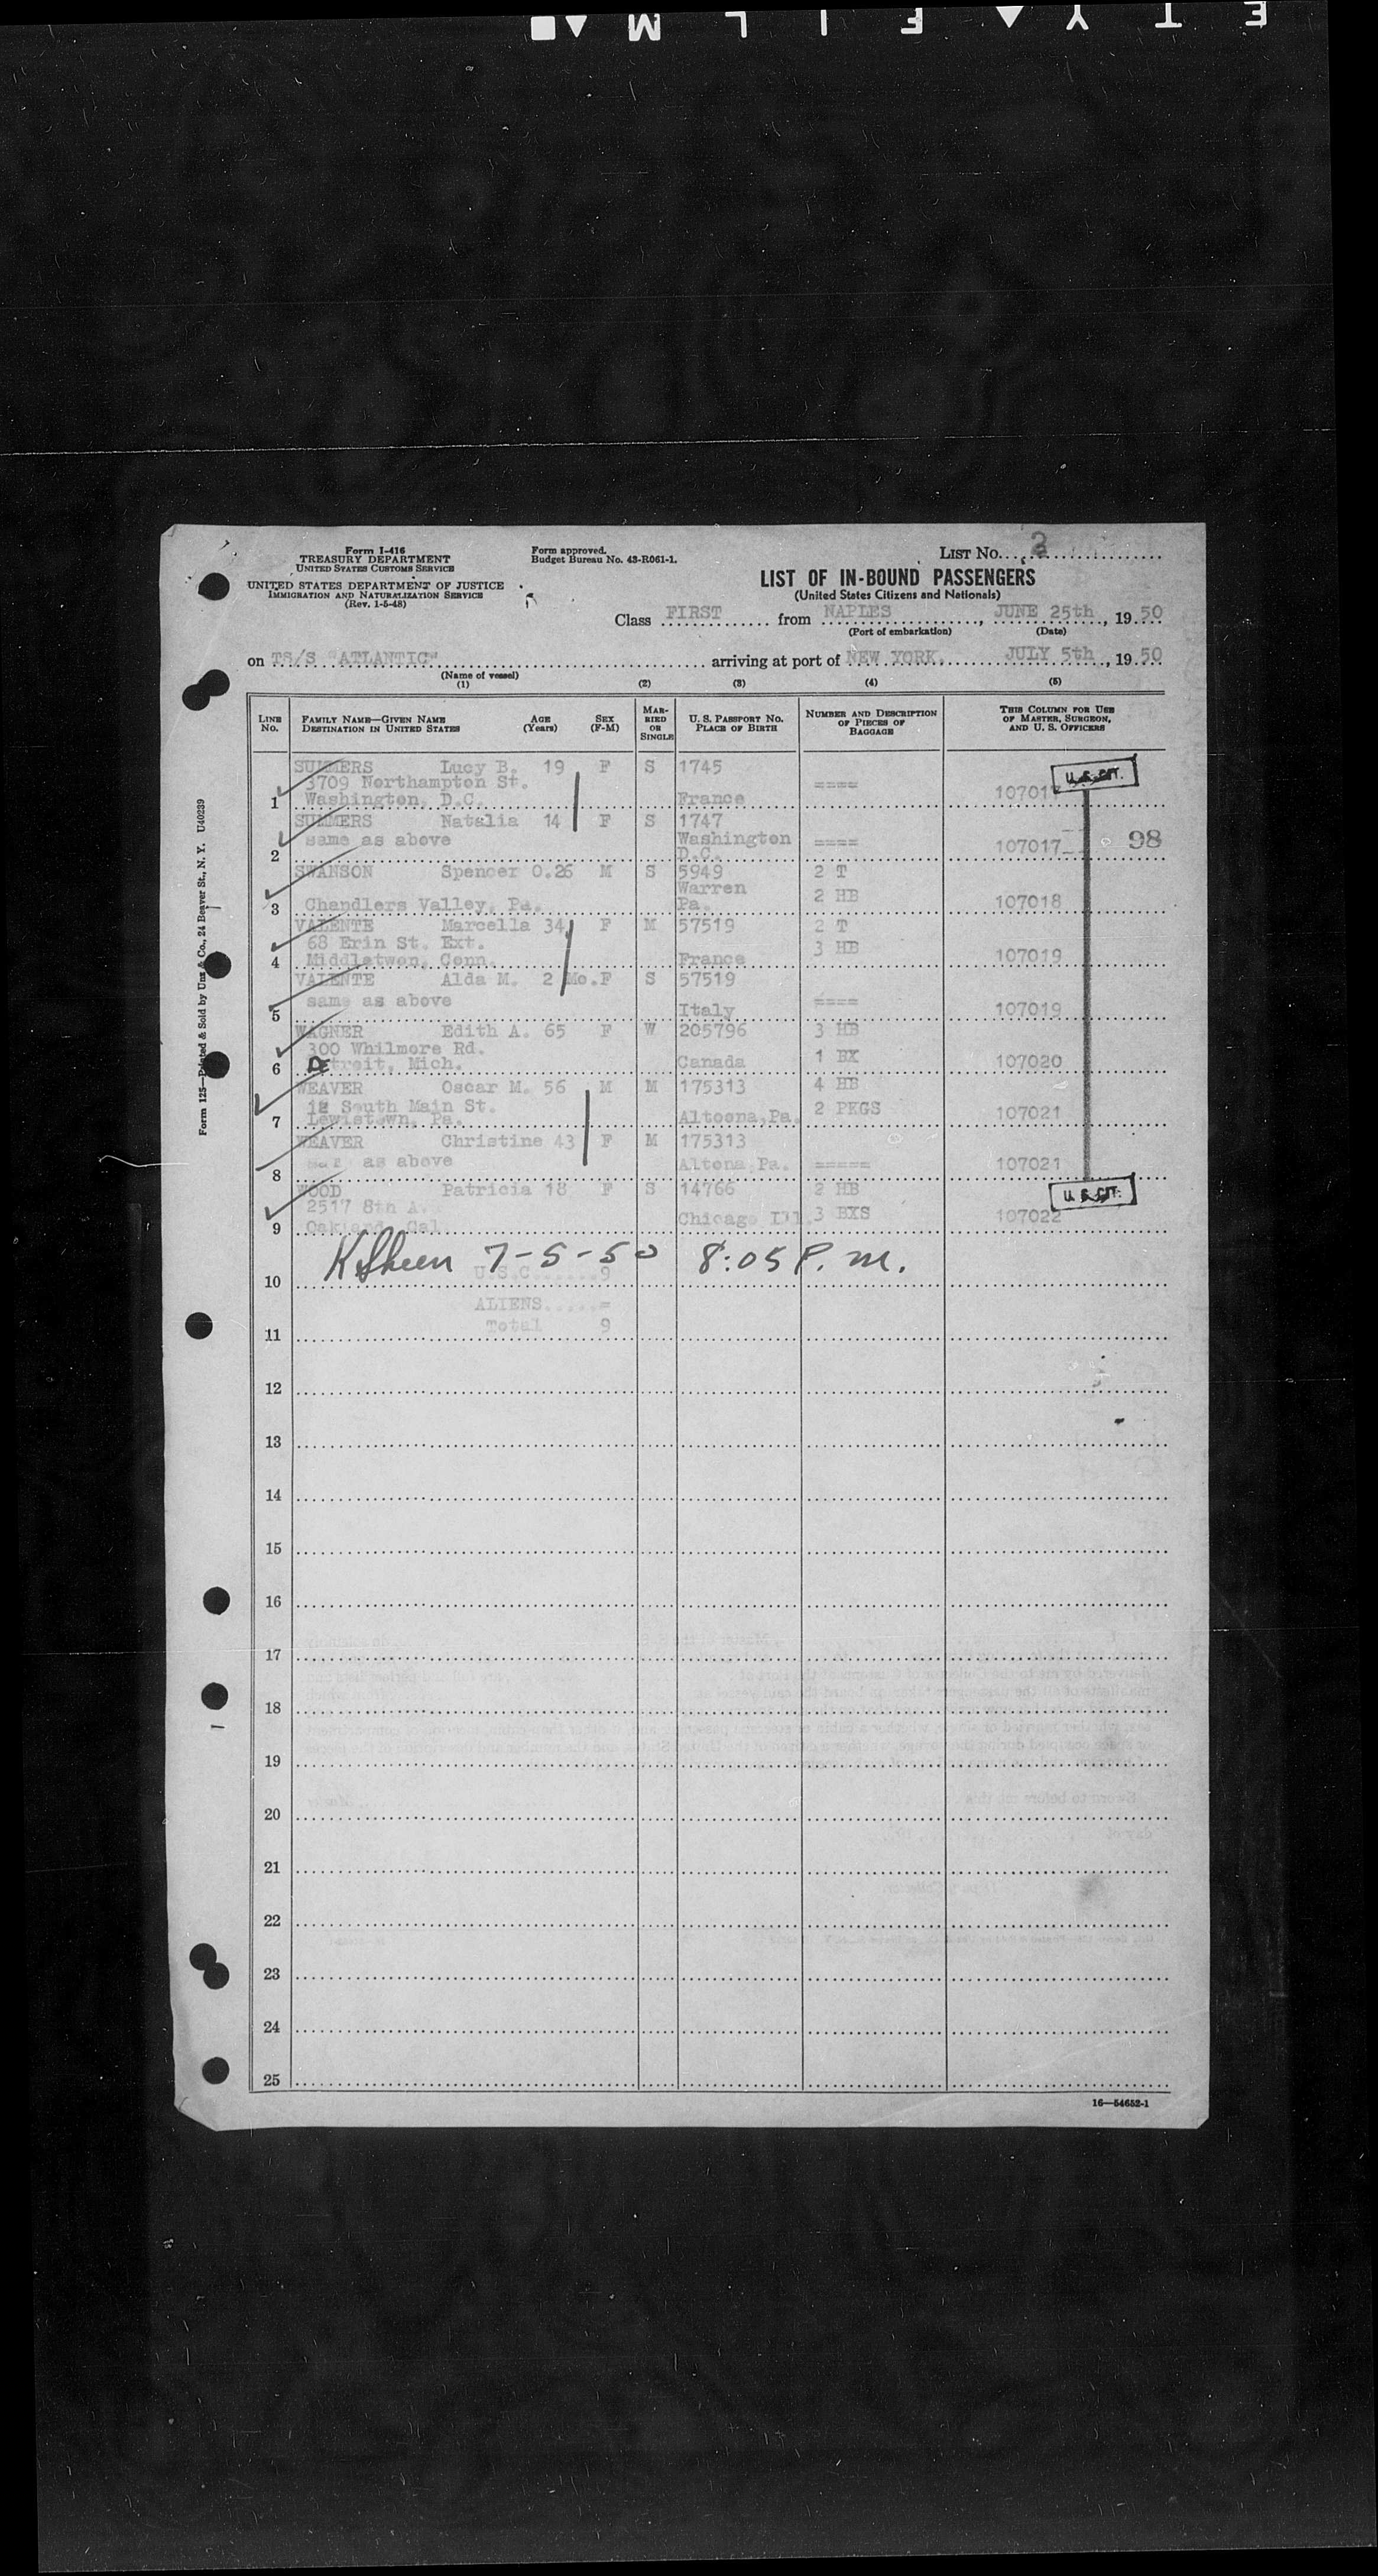 E T Y ▲ F I L M
Form I-416
TREASURY DEPARTMENT
UNITED STATES CUSTOMS SERVICE
UNITED STATES DEPARTMENT OF JUSTICE
IMMIGRATION AND NATURALIZATION SERVICE
(Rev. 1-5-48)
Form approved.
Budget Bureau No. 43-R061-1.
LIST NO. 3
LIST OF IN-BOUND PASSENGERS
(United States Citizens and Nationals)
Class FIRST from NAPLES, JUNE 25th, 19 50
(Port of embarkation) (Date)
on TS/S "ATLANTIC" arriving at port of NEW YORK, JULY 5th, 19 50
(Name of vessel)
(1) (2) (3) (4) (5)
LINE NO. FAMILY NAME—GIVEN NAME DESTINATION IN UNITED STATES AGE (Years) SEX (F-M) MARRIED OR SINGLE U. S. PASSPORT NO. PLACE OF BIRTH NUMBER AND DESCRIPTION OF PIECES OF BAGGAGE THIS COLUMN FOR USE OF MASTER, SURGEON, AND U. S. OFFICERS
SUMMERS Lucy B. 19 F S 1745
3709 Northampton St. ==== U.S. CIT.
1 Washington, D.C. France 107017
SUMMERS Natalia 14 F S 1747
same as above Washington ==== 107017 98
2 D.C.
SWANSON Spencer 0.26 M S 5949 2 T
Warren 2 HB
3 Chandlers Valley, Pa. Pa. 107018
VALENTE Marcella 34 F M 57519 2 T
68 Erin St. Ext. 3 HB
4 Middletwon, Conn. France 107019
VALENTE Alda M. 2 Mo. F S 57519
same as above ====
5 Italy 107019
WAGNER Edith A. 65 F W 205796 3 HB
300 Whilmore Rd. 1 BX
6 Detroit, Mich. Canada 107020
WEAVER Oscar M. 56 M M 175313 4 HB
12 South Main St. 2 PKGS
7 Lewistown, Pa. Altoona, Pa. 107021
WEAVER Christine 43 F M 175313
as above Altona, Pa. ===== 107021
8
WOOD Patricia 18 F S 14766 2 HB U.S. CIT.
2517 8th A
9 Oakland, Cal. Chicago Ill. 3 BXS 107022
7-5-50 8:05 P. m.
10 U.S.C. 9
ALIENS =
11 Total 9
12
13
14
15
16
17
18
19
20
21
22
23
24
25
16—54652-1
Form 125—Printed & Sold by Unz & Co., 24 Beaver St., N. Y. U40239